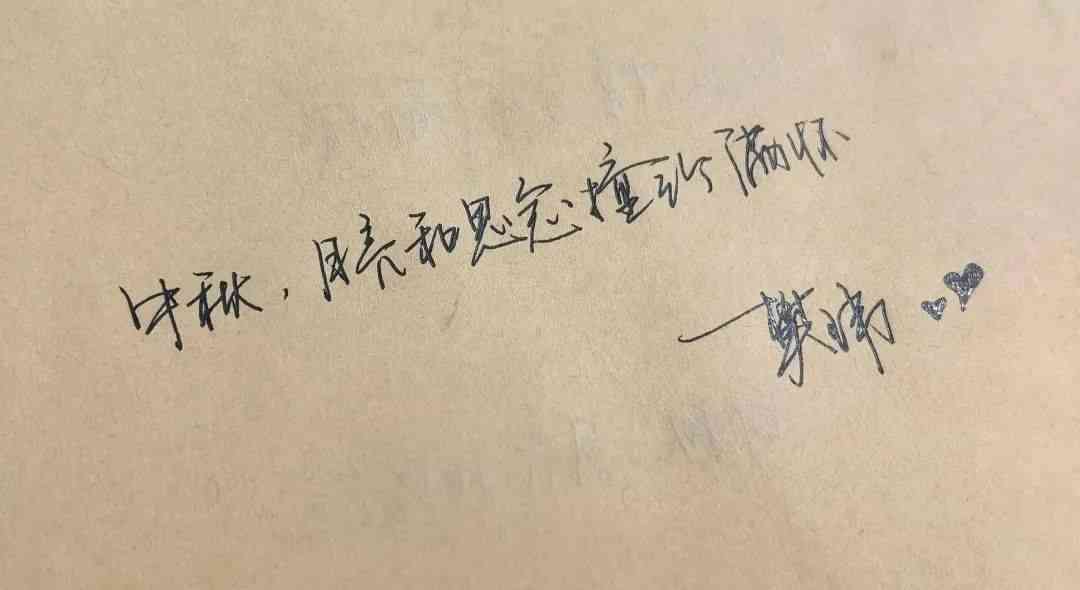 中秋，月亮和思念撞了个满怀